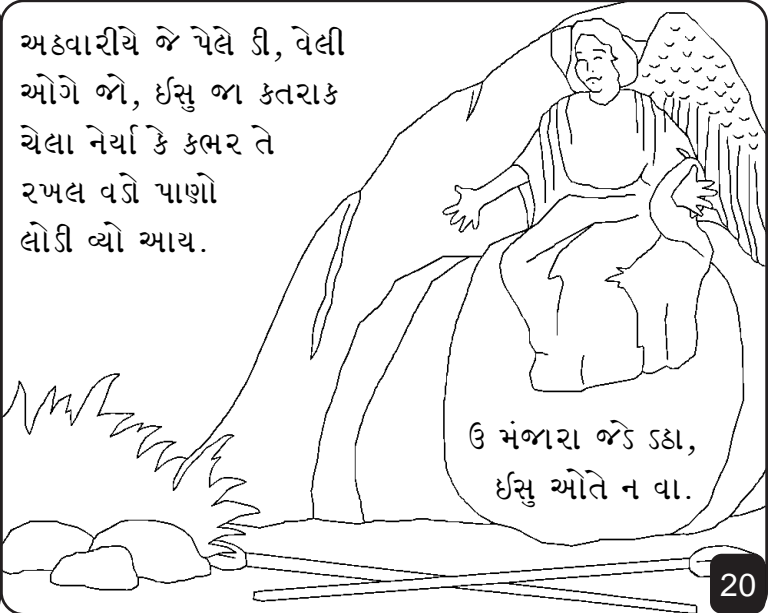 અઠવારીયે જે પેલે ડી, વેલી
ઓગે જો, ઈસુ જા કતરાક
ચેલા નેર્યા કે કભર તે
રખલ વડો પાણો
લોડી વ્યો આય.
ઉ મંજારા જડેં ડઠા,
ઈસુ ઓતે ન વા.
20